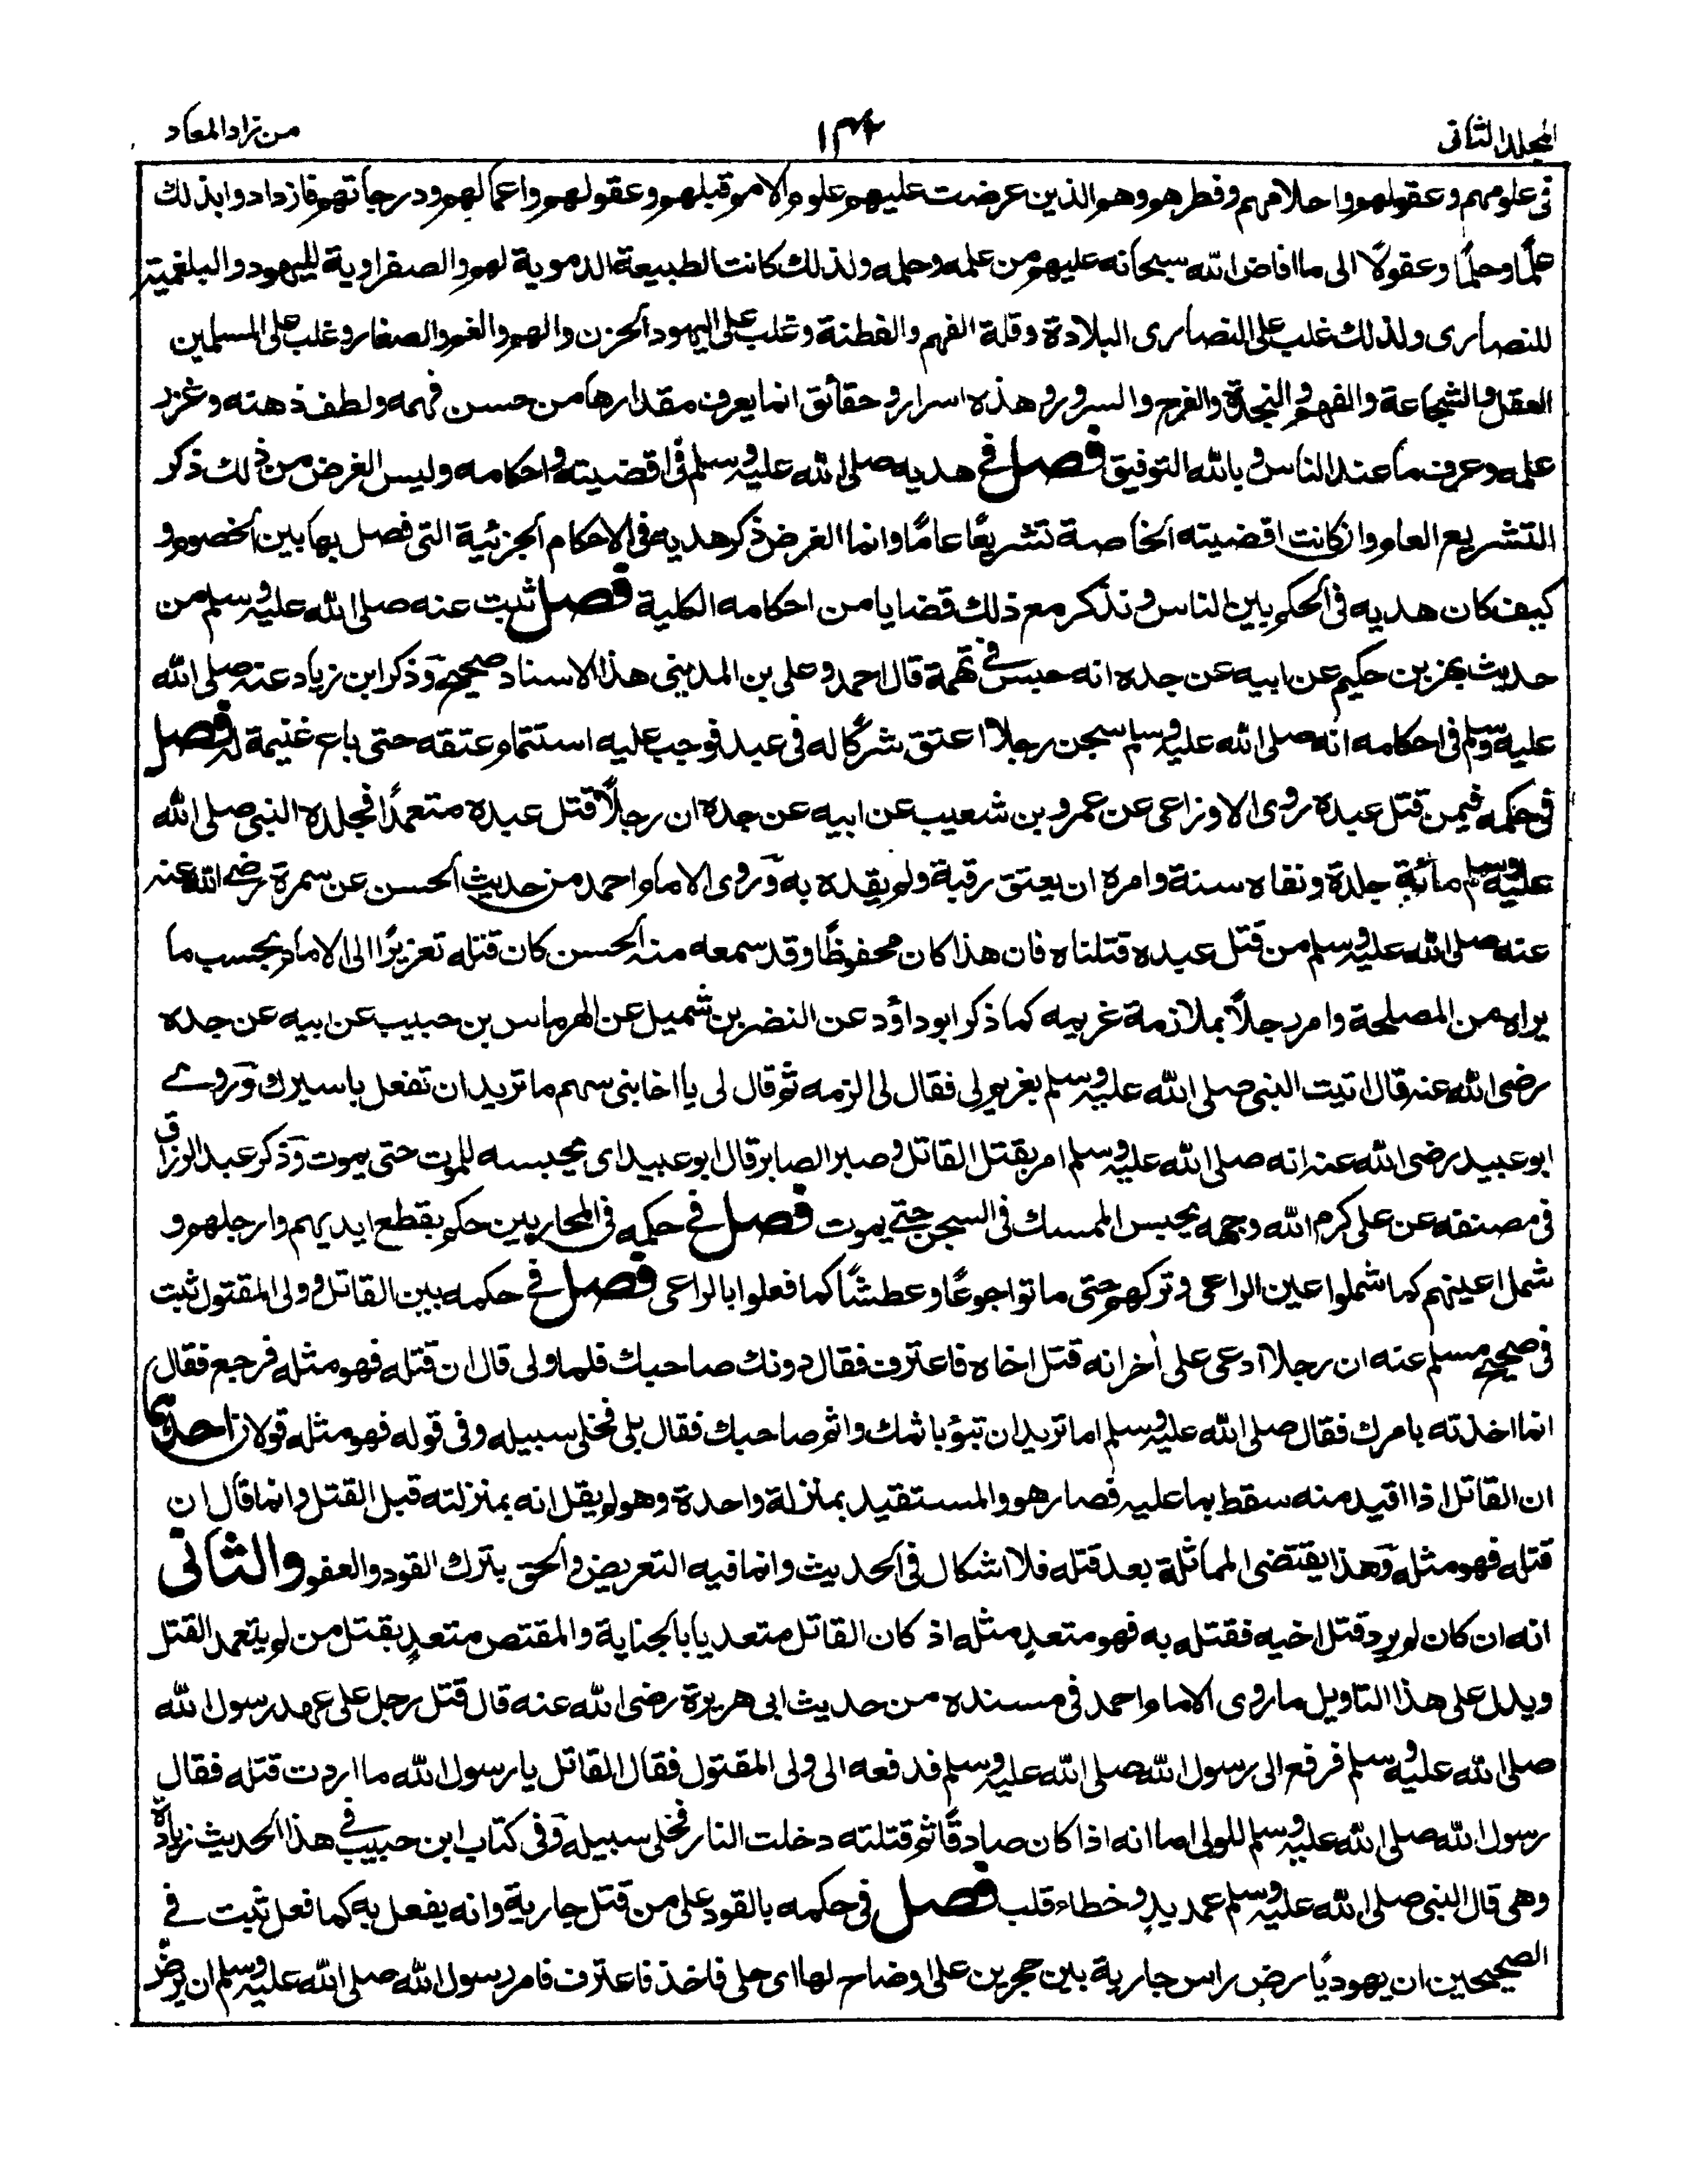 المجلد الثانى
١٣٤
من زاد المعاد
فى علومهم وعقولهم واحلامهم وفطرهم وهم الذين عرضت عليهم علوم الامم قبلهم وعقولهم واعمالهم ودرجاتهم فازدادوا بذلك
علمًا وحلمًا وعقولًا الى ما افاض الله سبحانه عليهم من علمه وحلمه ولذلك كانت الطبيعة الدموية لهم والصفراوية لليهود والبلغمية
للنصارى ولذلك غلب على النصارى البلادة وقلة الفهم والفطنة وغلب على اليهود الحزن والهم والغم والصغار وغلب على المسلمين
العقل والشجاعة والفهم والنجدة والفرح والسرور وهذه اسرار وحقائق انما يعرف مقدارها من حسن فهمه ولطف ذهنه وغزر
علمه وعرف ما عند الناس وبالله التوفيق فصل فى هديه صلى الله عليه وسلم فى اقضيته واحكامه وليس الغرض من ذلك ذكر
التشريع العام وان كانت اقضيته الخاصة تشريعًا عامًا وانما الغرض ذكر هديه فى الاحكام الجزئية التى فصل بها بين الخصوم و
كيف كان هديه فى الحكم بين الناس ونذكر مع ذلك قضايا من احكامه الكلية فصل ثبت عنه صلى الله عليه وسلم من
حديث بهز بن حكيم عن ابيه عن جده انه حبس فى تهمة قال احمد وعلى بن المدينى هذا الاسناد صحيح وذكر ابن زياد عنه صلى الله
عليه وسلم فى احكامه انه صلى الله عليه وسلم سجن رجلا اعتق شركًا له فى عبد فوجب عليه استتمام عتقه حتى باع غنيمة له فصل
فى حكمه فيمن قتل عبده روى الاوزاعى عن عمرو بن شعيب عن ابيه عن جده ان رجلًا قتل عبده متعمدًا فجلده النبى صلى الله
عليه وسلم مائة جلدة ونفاه سنة وامره ان يعتق رقبة ولم يقده به وروى الامام احمد من حديث الحسن عن سمرة رضى الله عنه
عنه صلى الله عليه وسلم من قتل عبده قتلناه فان هذا كان محفوظًا وقد سمعه منه الحسن كان قتله تعزيرًا الى الامام بحسب ما
يراه من المصلحة وامر رجلًا بملازمة غريمه كما ذكر ابو داؤد عن النضر بن شميل عن الهرماس بن حبيب عن ابيه عن جده
رضى الله عنه قال اتيت النبى صلى الله عليه وسلم بغريم لى فقال لى الزمه ثم قال لى يا اخا بنى سهم ما تريد ان تفعل باسيرك وروى
ابو عبيد رضى الله عنه انه صلى الله عليه وسلم امر بقتل القاتل وصبر الصابر قال ابو عبيد اى يحبسه للموت حتى يموت وذكر عبد الرزاق
فى مصنفه عن على كرم الله وجهه يحبس الممسك فى السجن حتى يموت فصل فى حكمه فى المحاربين حكم بقطع ايديهم وارجلهم و
شمل اعينهم كما شملوا عين الراعى وتركهم حتى ماتوا جوعًا وعطشًا كما فعلوا بالراعى فصل فى حكمه بين القاتل وولى المقتول ثبت
فى صحيح مسلم عنه ان رجلا ادعى على اخر انه قتل اخاه فاعترف فقال دونك صاحبك فلما ولى قال ان قتله فهو مثله فرجع فقال
انما اخذته بامرك فقال صلى الله عليه وسلم اما تريد ان تبؤ باثمك واثم صاحبك فقال بلى فخلى سبيله وفى قوله فهو مثله قولان احدهما
ان القاتل اذا اقيد منه سقط بما عليه فصار هو والمستقيد بمنزلة واحدة وهو لم يقل انه بمنزلته قبل القتل وانما قال ان
قتله فهو مثله وهذا يقتضى المماثلة بعد قتله فلا اشكال فى الحديث وانما فيه التعريض والحق بترك القود والعفو والثانى
انه ان كان لم يرد قتل اخيه فقتله به فهو متعد مثله اذ كان القاتل متعديا بالجناية والمقتص متعد بقتل من لم يتعمد القتل
ويدل على هذا التاويل ما روى الامام احمد فى مسنده من حديث ابى هريرة رضى الله عنه قال قتل رجل على عهد رسول الله
صلى الله عليه وسلم فرفع الى رسول الله صلى الله عليه وسلم فدفعه الى ولى المقتول فقال القاتل يا رسول الله ما اردت قتله فقال
رسول الله صلى الله عليه وسلم للولى اما انه اذا كان صادقًا ثم قتلته دخلت النار فخلى سبيله وفى كتاب ابن حبيب فى هذا الحديث زيادة
وهى قال النبى صلى الله عليه وسلم عمد يدٍ وخطاء قلب فصل فى حكمه بالقود على من قتل جارية وانه يفعل به كما فعل ثبت فى
الصحيحين ان يهوديًا رض راس جارية بين حجرين على اوضاح لها اى حلى فاخذ فاعترف فامر رسول الله صلى الله عليه وسلم ان يرض